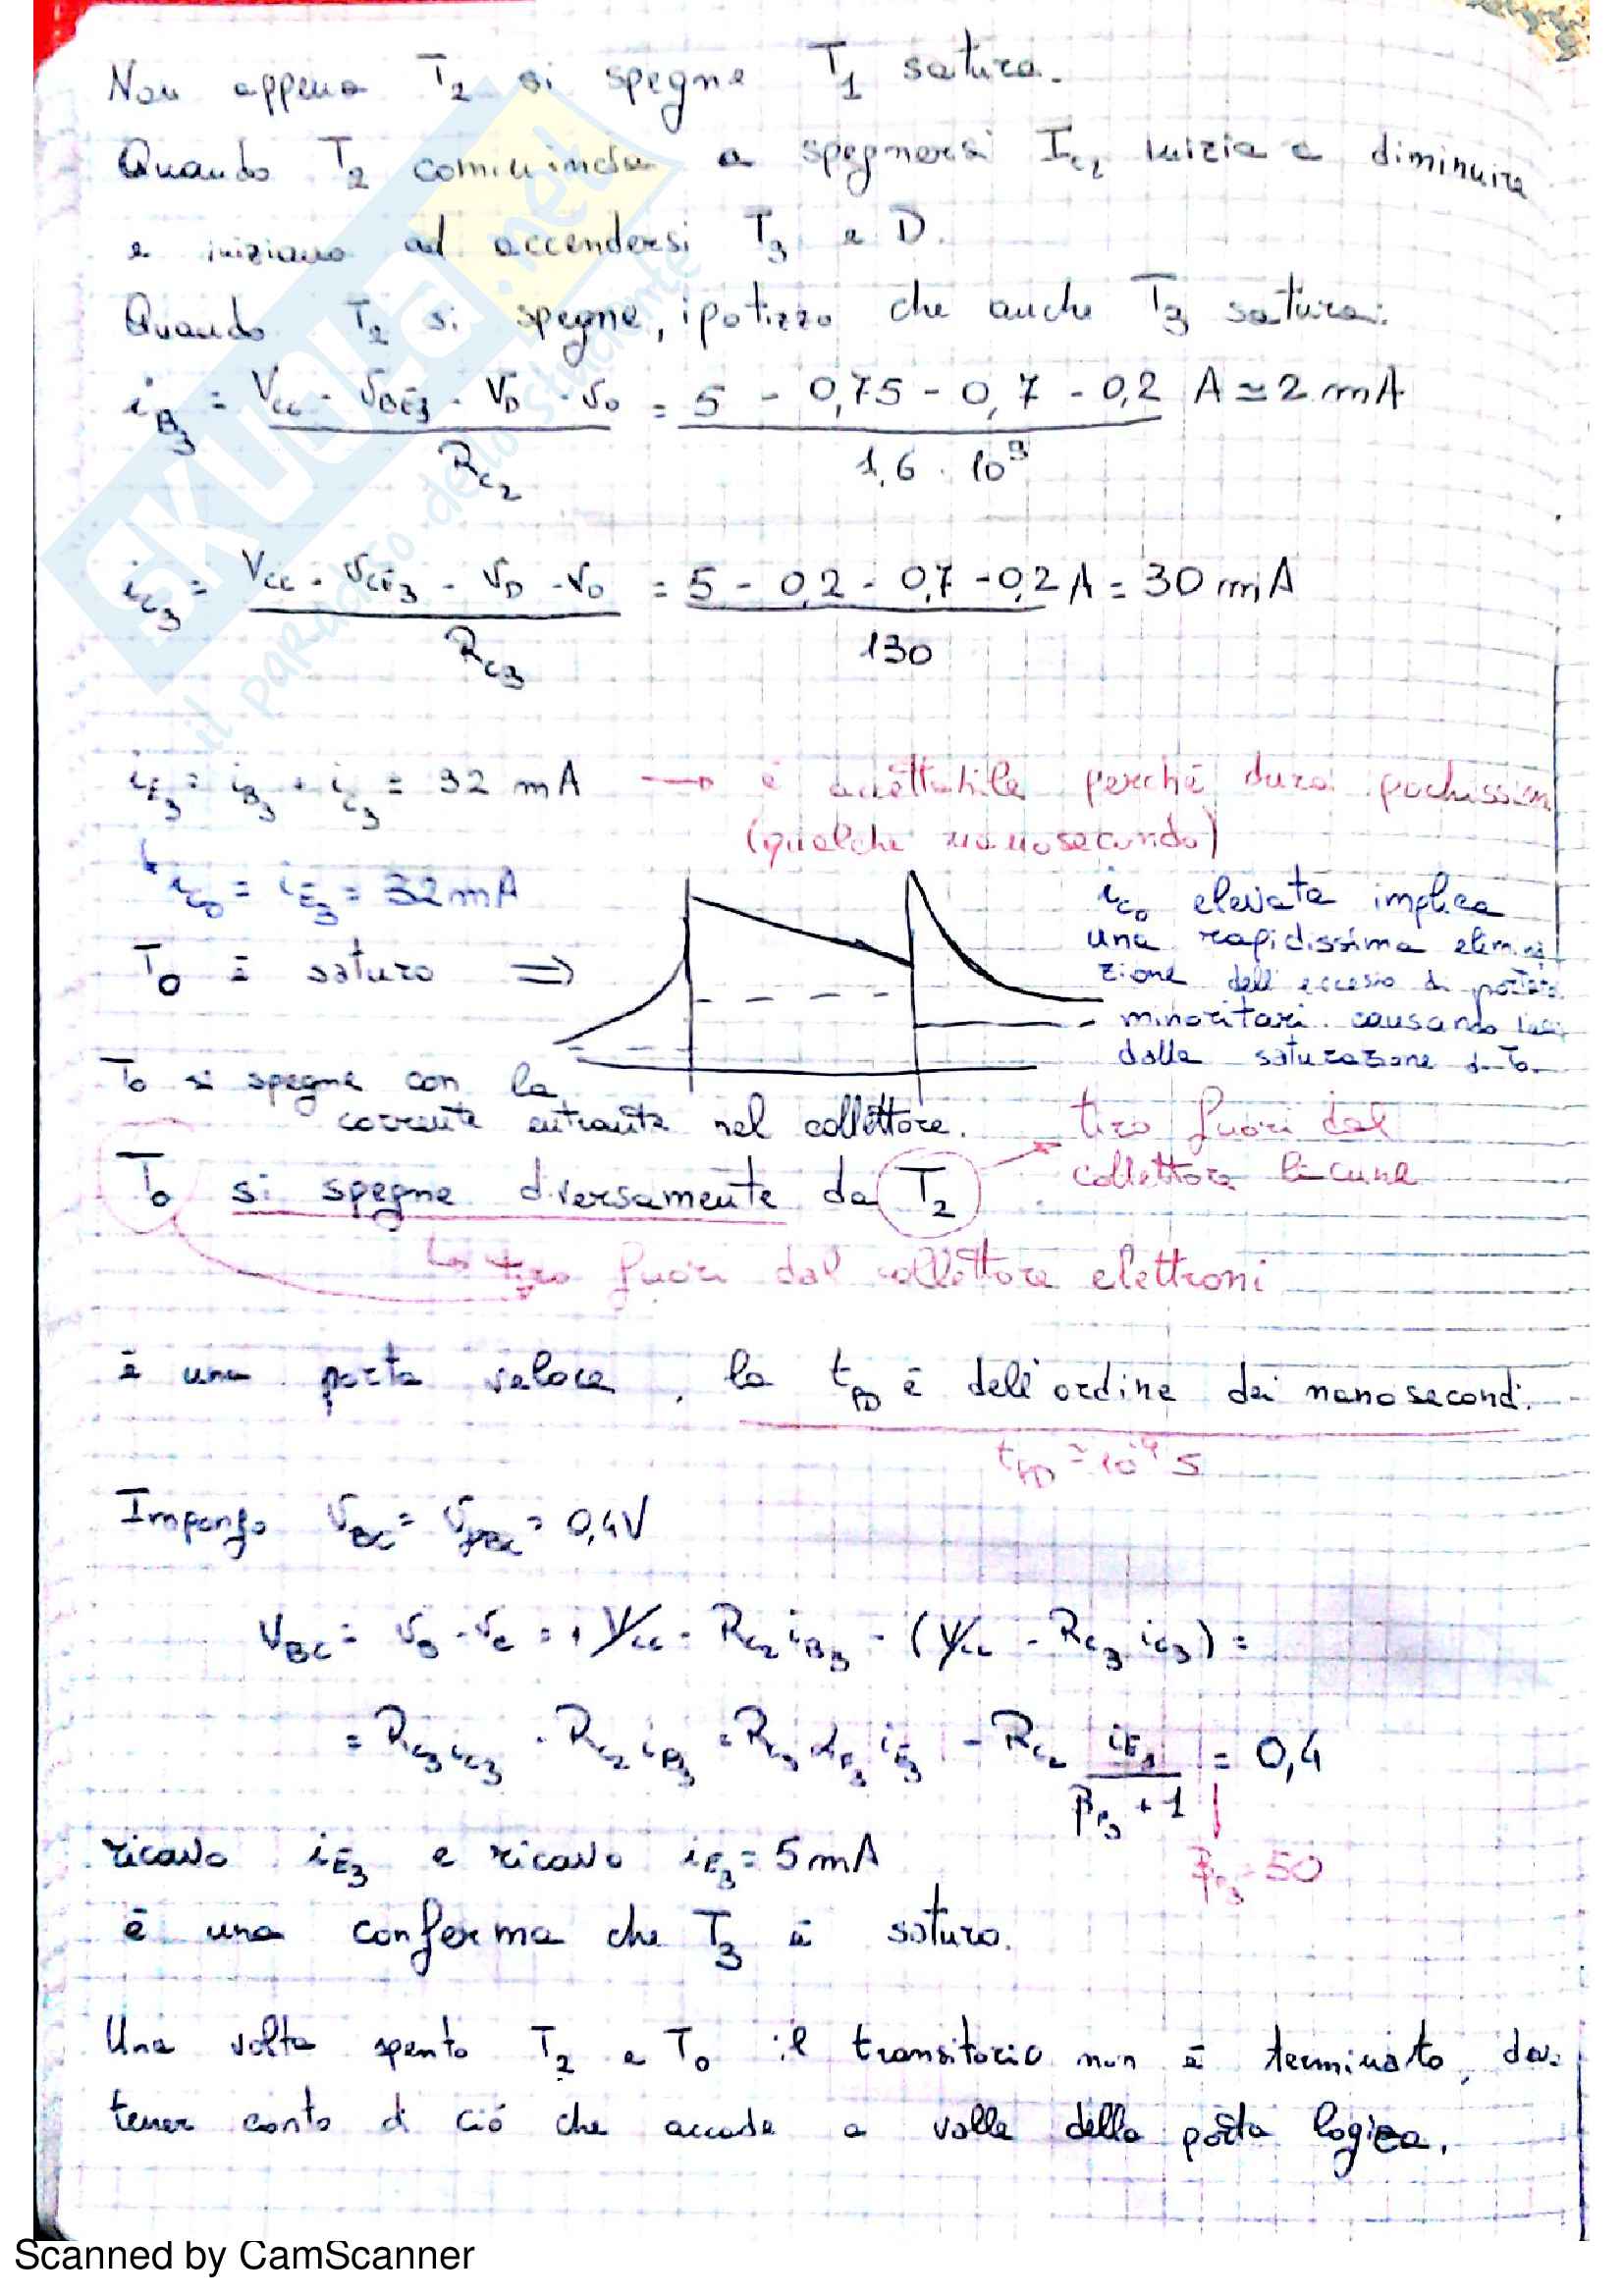 Non appena T2 si spegne T1 satura.
Quando T2 comincia a spegnersi Ic2 inizia a diminuire
e iniziano ad accendersi T3 e D.
Quando T2 si spegne, ipotizzo che anche T3 satura:
iB3 = (Vcc - VBE3 - VD - V0) / Rc2 = (5 - 0,75 - 0,7 - 0,2) / (1,6 · 10³) A ≃ 2 mA
ic3 = (Vcc - VCE3 - VD - V0) / Rc3 = (5 - 0,2 - 0,7 - 0,2) / 130 A = 30 mA
iE3 = iB3 + ic3 = 32 mA → è accettabile perché dura pochissimo
(qualche nanosecondo)
↳ ic0 = iE3 = 32 mA
T0 è saturo ⇒
ic0 elevata implica
una rapidissima elimina
zione dell'eccesso di portatori
minoritari causando
dalla saturazione di T0.
T0 si spegne con la
corrente entrante nel collettore.
tiro fuori dal
collettore lacune
T0 si spegne diversamente da T2
↳ tiro fuori dal collettore elettroni
è una porta veloce, la tPD è dell'ordine dei nanosecondi.
tPD ≃ 10⁻⁹ s
Impongo VBC = VγBC = 0,4V
VBC = VB - Vc = + Vcc - Rc2 iB3 - (Vcc - Rc3 ic3) =
= Rc3 ic3 - Rc2 iB3 = Rc3 αF3 iE3 - Rc2 iE3 / (βF3 + 1) = 0,4
βF3 = 50
ricavo iE3 e ricavo iE3 = 5 mA
è una conferma che T3 è saturo.
Una volta spento T2 e T0 il transitorio non è terminato, devo
tener conto di ciò che accade a valle della porta logica.
SKUOLA.net
il paradiso dello studente
Scanned by CamScanner